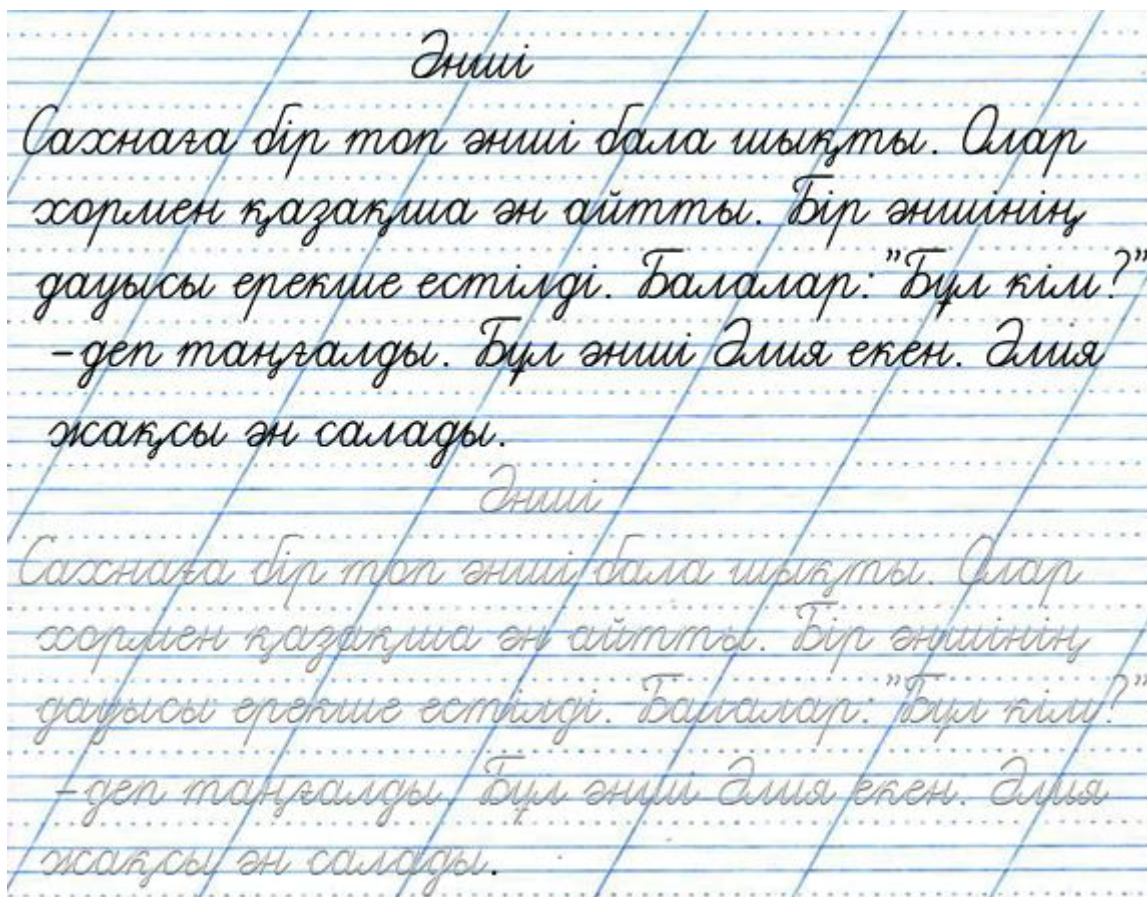 Әнші
Сахнаға бір топ әнші бала шықты. Олар
хормен қазақша ән айтты. Бір әншінің
дауысы ерекше естілді. Балалар:"Бұл кім?"
-деп таңғалды. Бұл әнші Әлия екен. Әлия
жақсы ән салады.
Әнші
Сахнаға бір топ әнші бала шықты. Олар
хормен қазақша ән айтты. Бір әншінің
дауысы ерекше естілді. Балалар:"Бұл кім?"
-деп таңғалды. Бұл әнші Әлия екен. Әлия
жақсы ән салады.